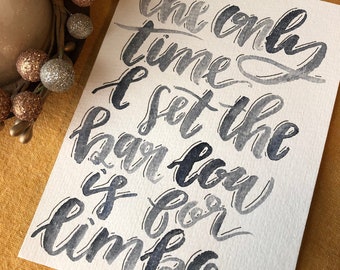 the only
time
I set the
bar low
is for
limbo